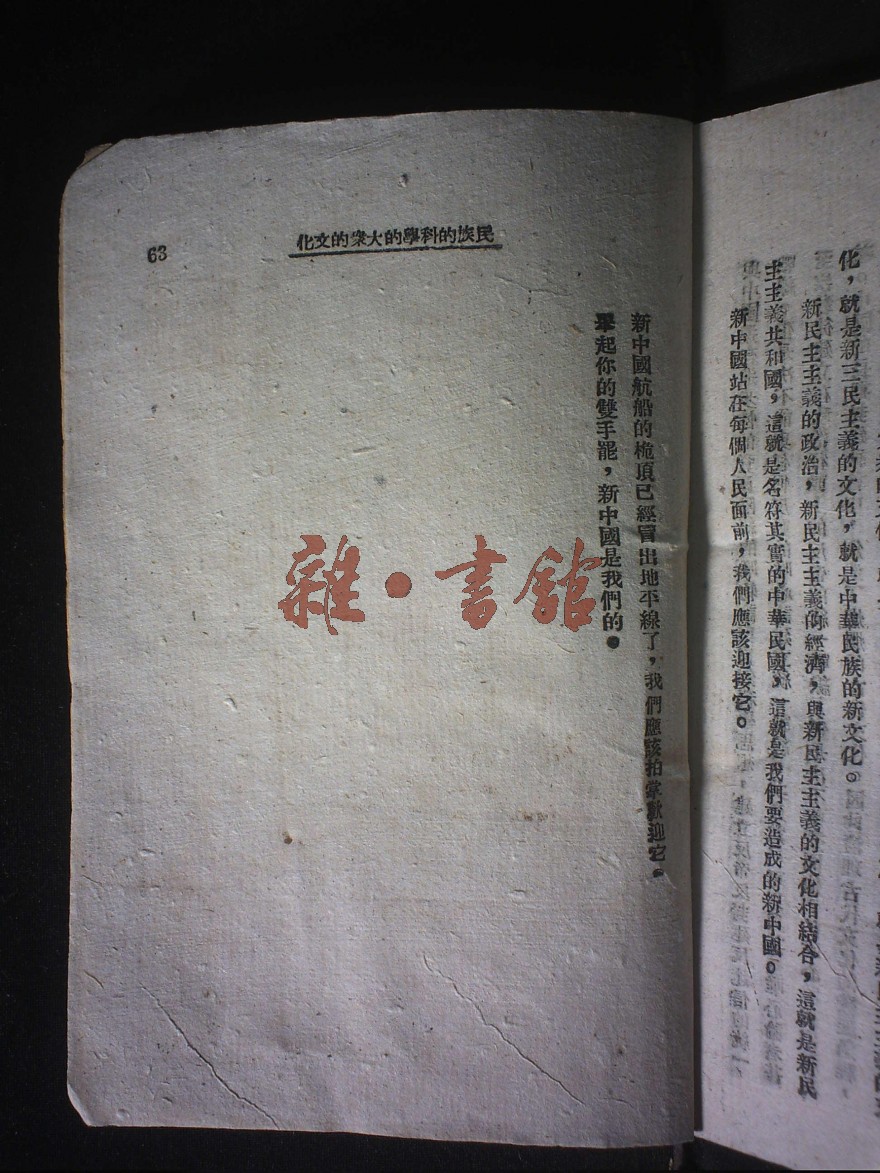 化，就是新三民主義的文化，就是中華民族的新文化。
新民主主義的政治，新民主主義的經濟，與新民主主義的文化相結合，這就是新民
主主義共和國，這就是名符其實的中華民國，這就是我們要造成的新中國。
新中國站在每個人民面前，我們應該迎接它。
民族的科學的大衆的文化
63
新中國航船的桅頂已經冒出地平線了，我們應該拍掌歡迎它。
舉起你的雙手罷，新中國是我們的。
雜·書館